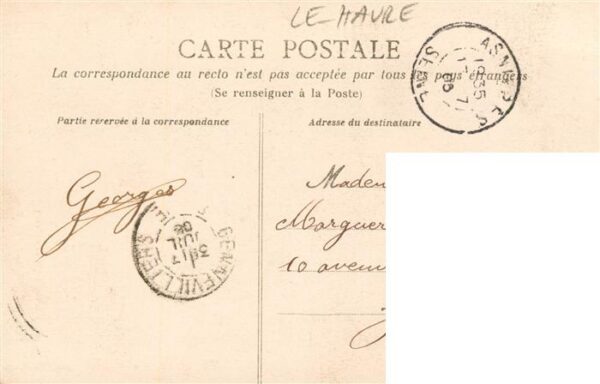 LE-HAVRE
CARTE POSTALE
La correspondance au recto n'est pas acceptée par tous les pays étrangers
(Se renseigner à la Poste)
Partie réservée à la correspondance
Adresse du destinataire
ASNIERES
SEINE
19 35
7
Georges
Madem
Marguer
10 avenu
GENNEVILLIERS
3E
17
JUIL